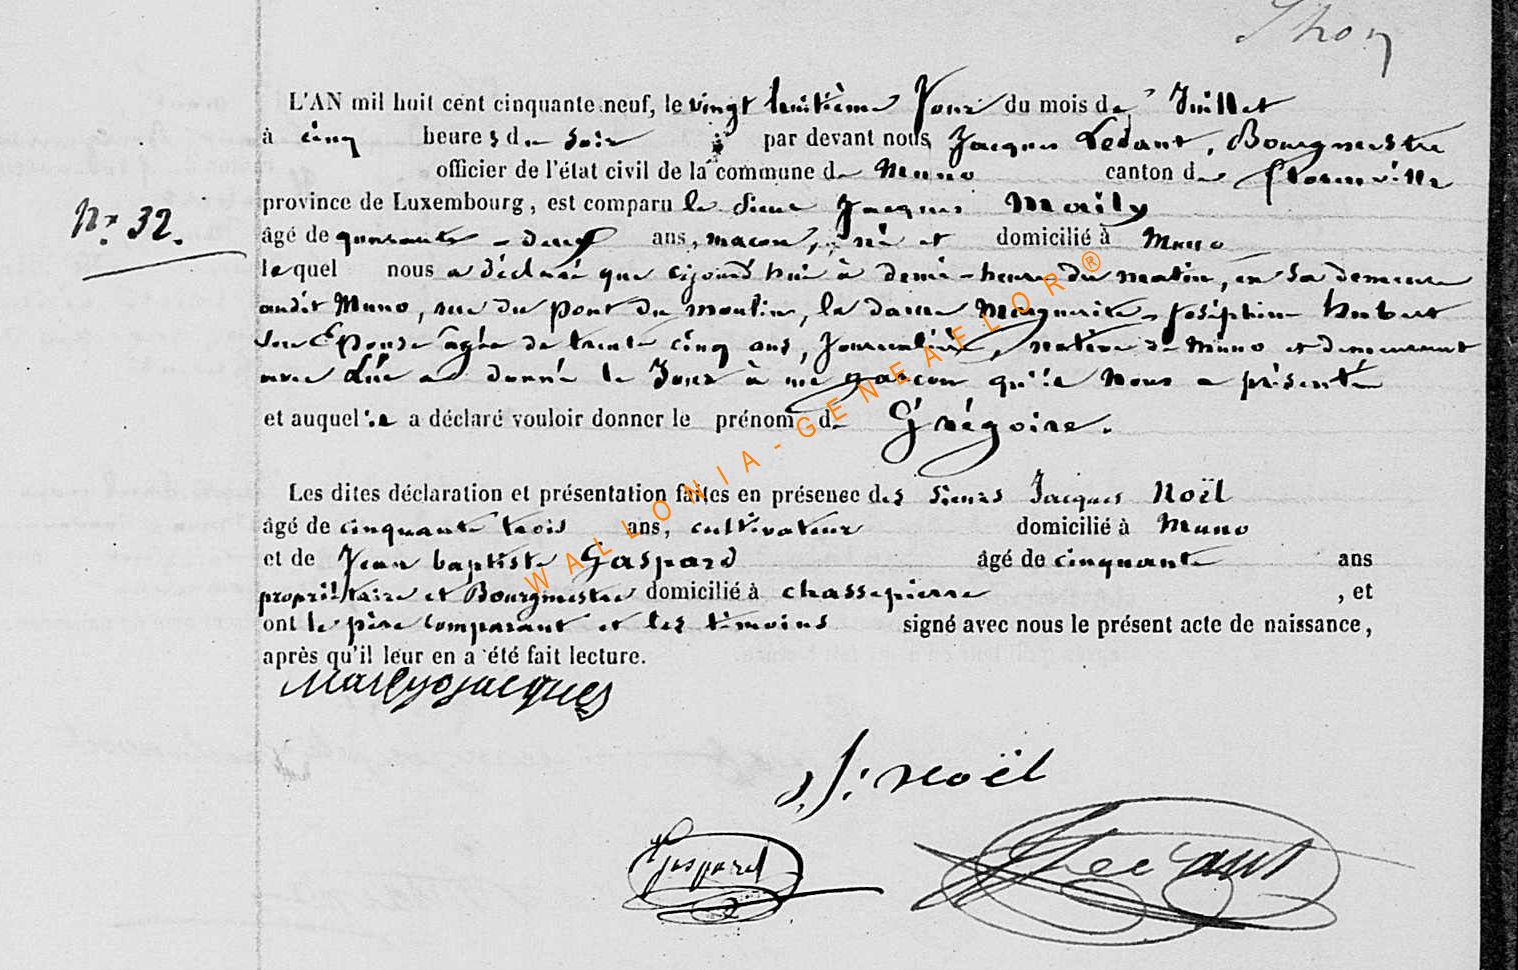 L'AN mil huit cent cinquante neuf, le vingt huitième Jour du mois de Juillet
à cinq heures du soir par devant nous, Jacques Ledant, Bourgmestre
officier de l'état civil de la commune de Muno canton de florenville
province de Luxembourg, est comparu le Sieur Jacques Maily
Nr. 32.
âgé de quarante-deux ans, macon, né et domicilié à Muno
lequel nous a déclaré que cejourd'hui à demi-heure du matin, en sa demeure
audit Muno, rue du pont du moulin, la dame Marguerite Joséphine Hubert
son Epouse âgée de trente cinq ans, Journalière, native de Muno et demeurant
avec lui a donné le Jour à un garcon qu'il nous a présenté
et auquel il a déclaré vouloir donner le prénom de Grégoire.
Les dites déclaration et présentation faites en présence des sieurs Jacques Noël
âgé de cinquante trois ans, cultivateur domicilié à Muno
et de Jean baptiste Gaspard âgé de cinquante ans
propriétaire et Bourgmestre domicilié à chassepierre , et
ont le père comparant et les témoins signé avec nous le présent acte de naissance,
après qu'il leur en a été fait lecture.
Maily jacques
J. noël
Gaspard
Ledant
WALLONIA-GENEAFLOR®